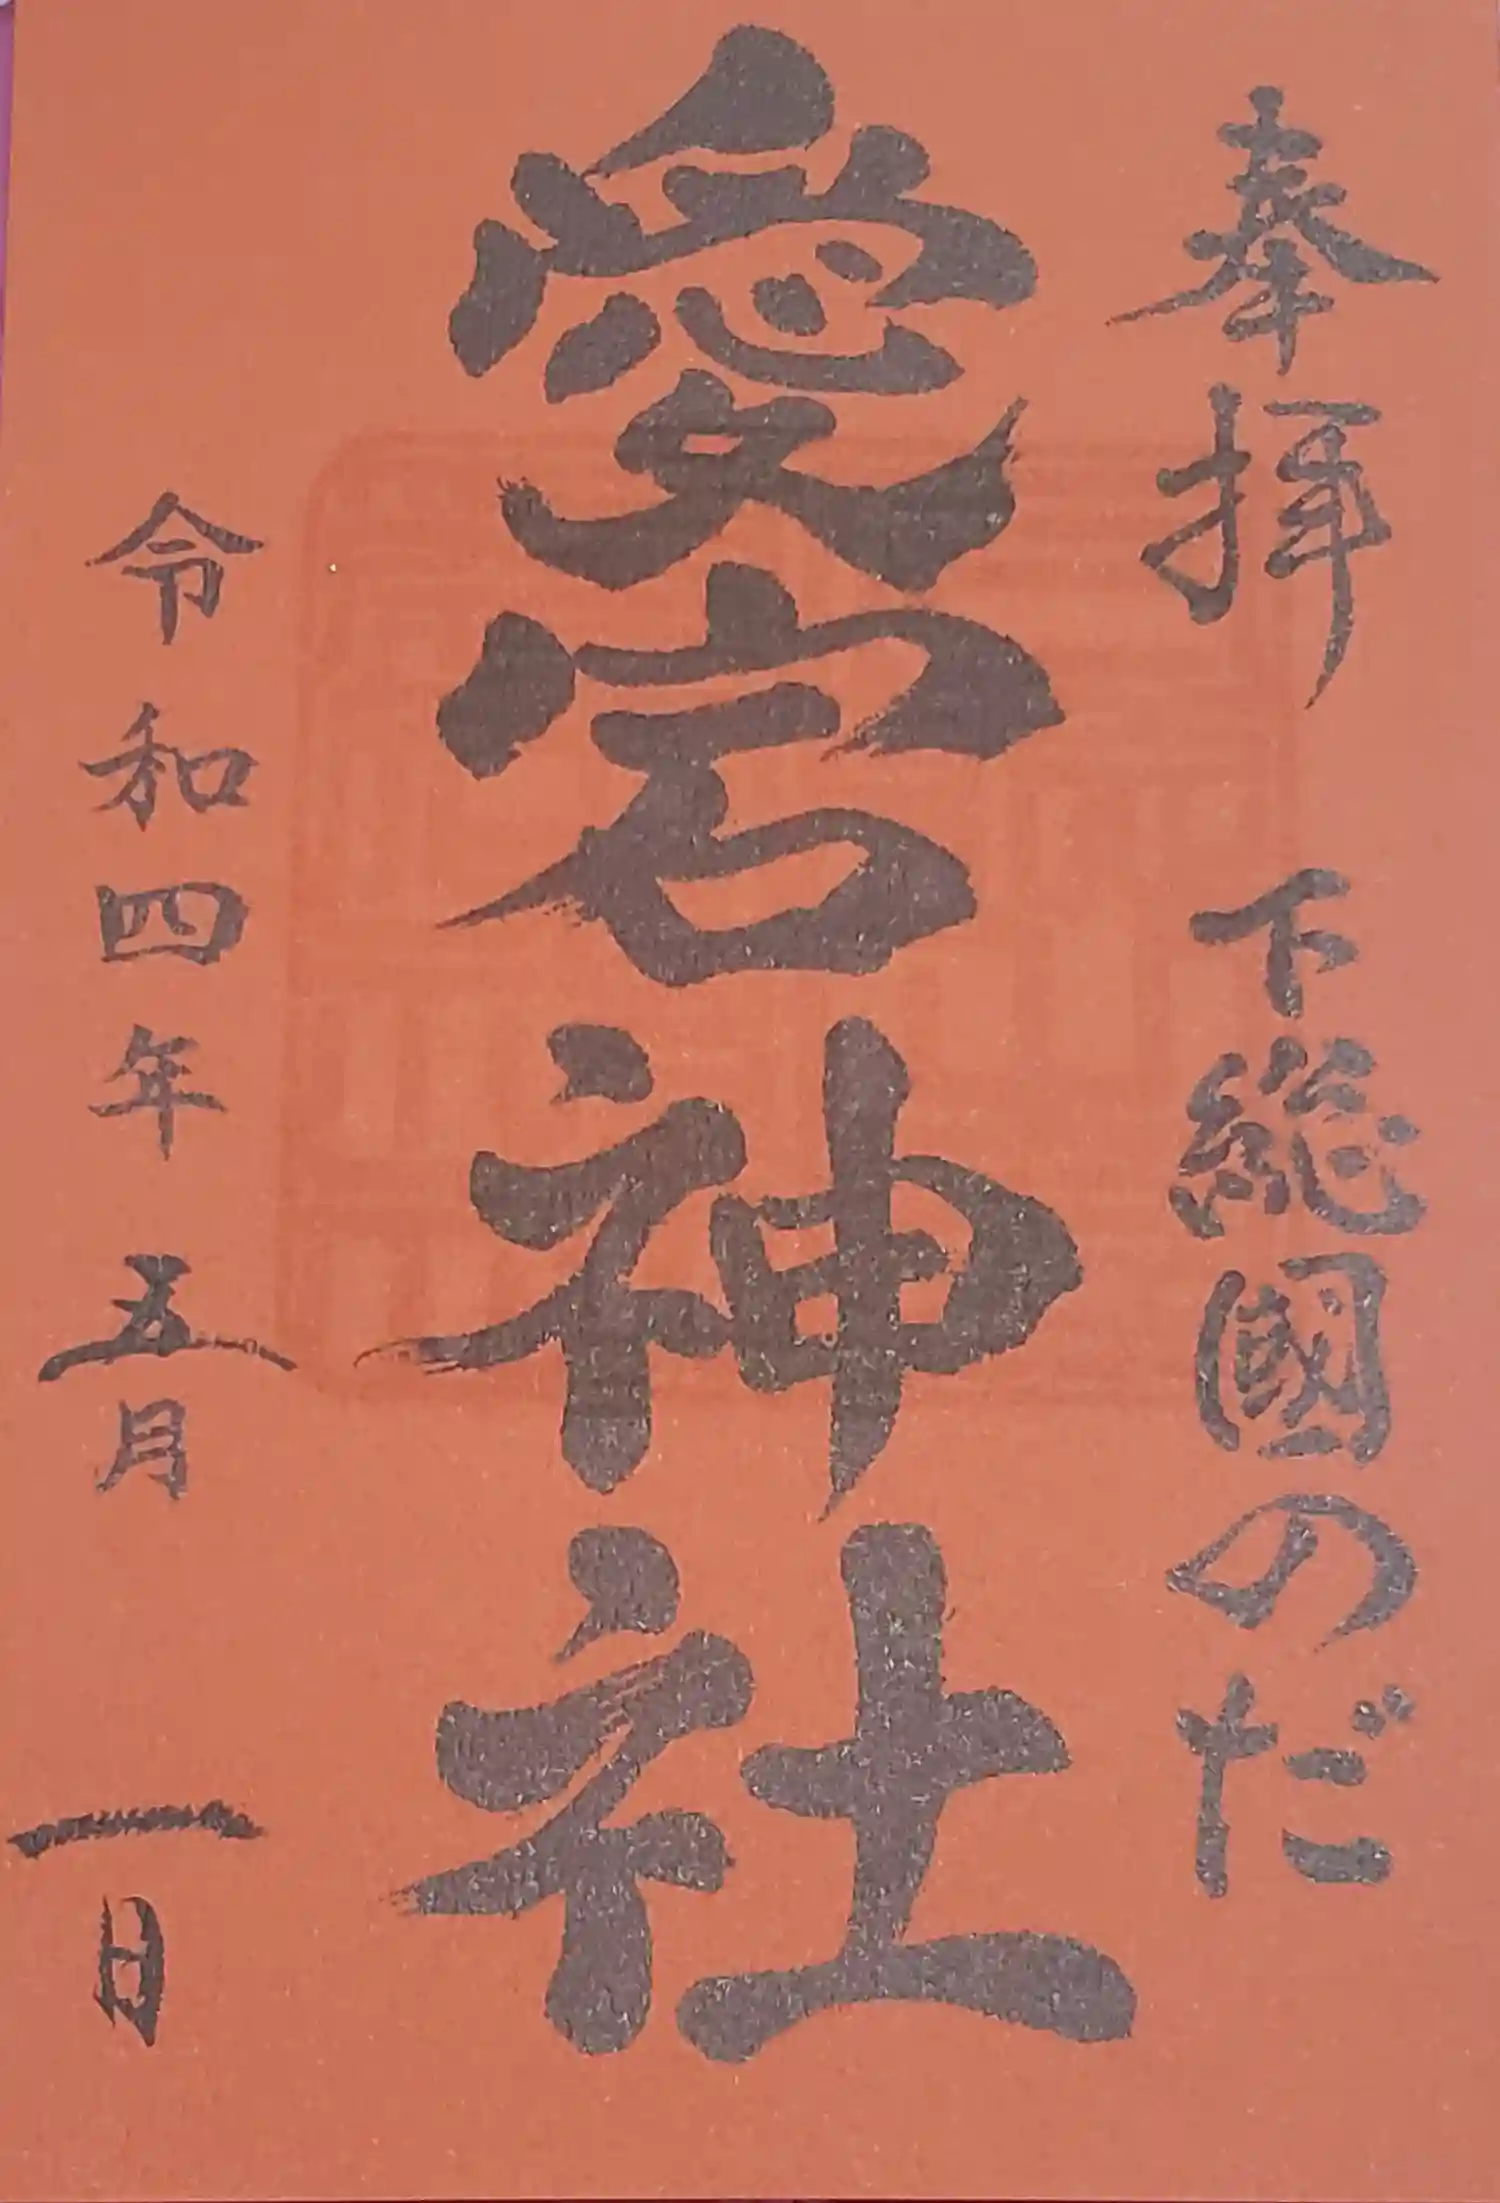 奉拝　下総國のだ
愛宕神社
令和四年五月一日